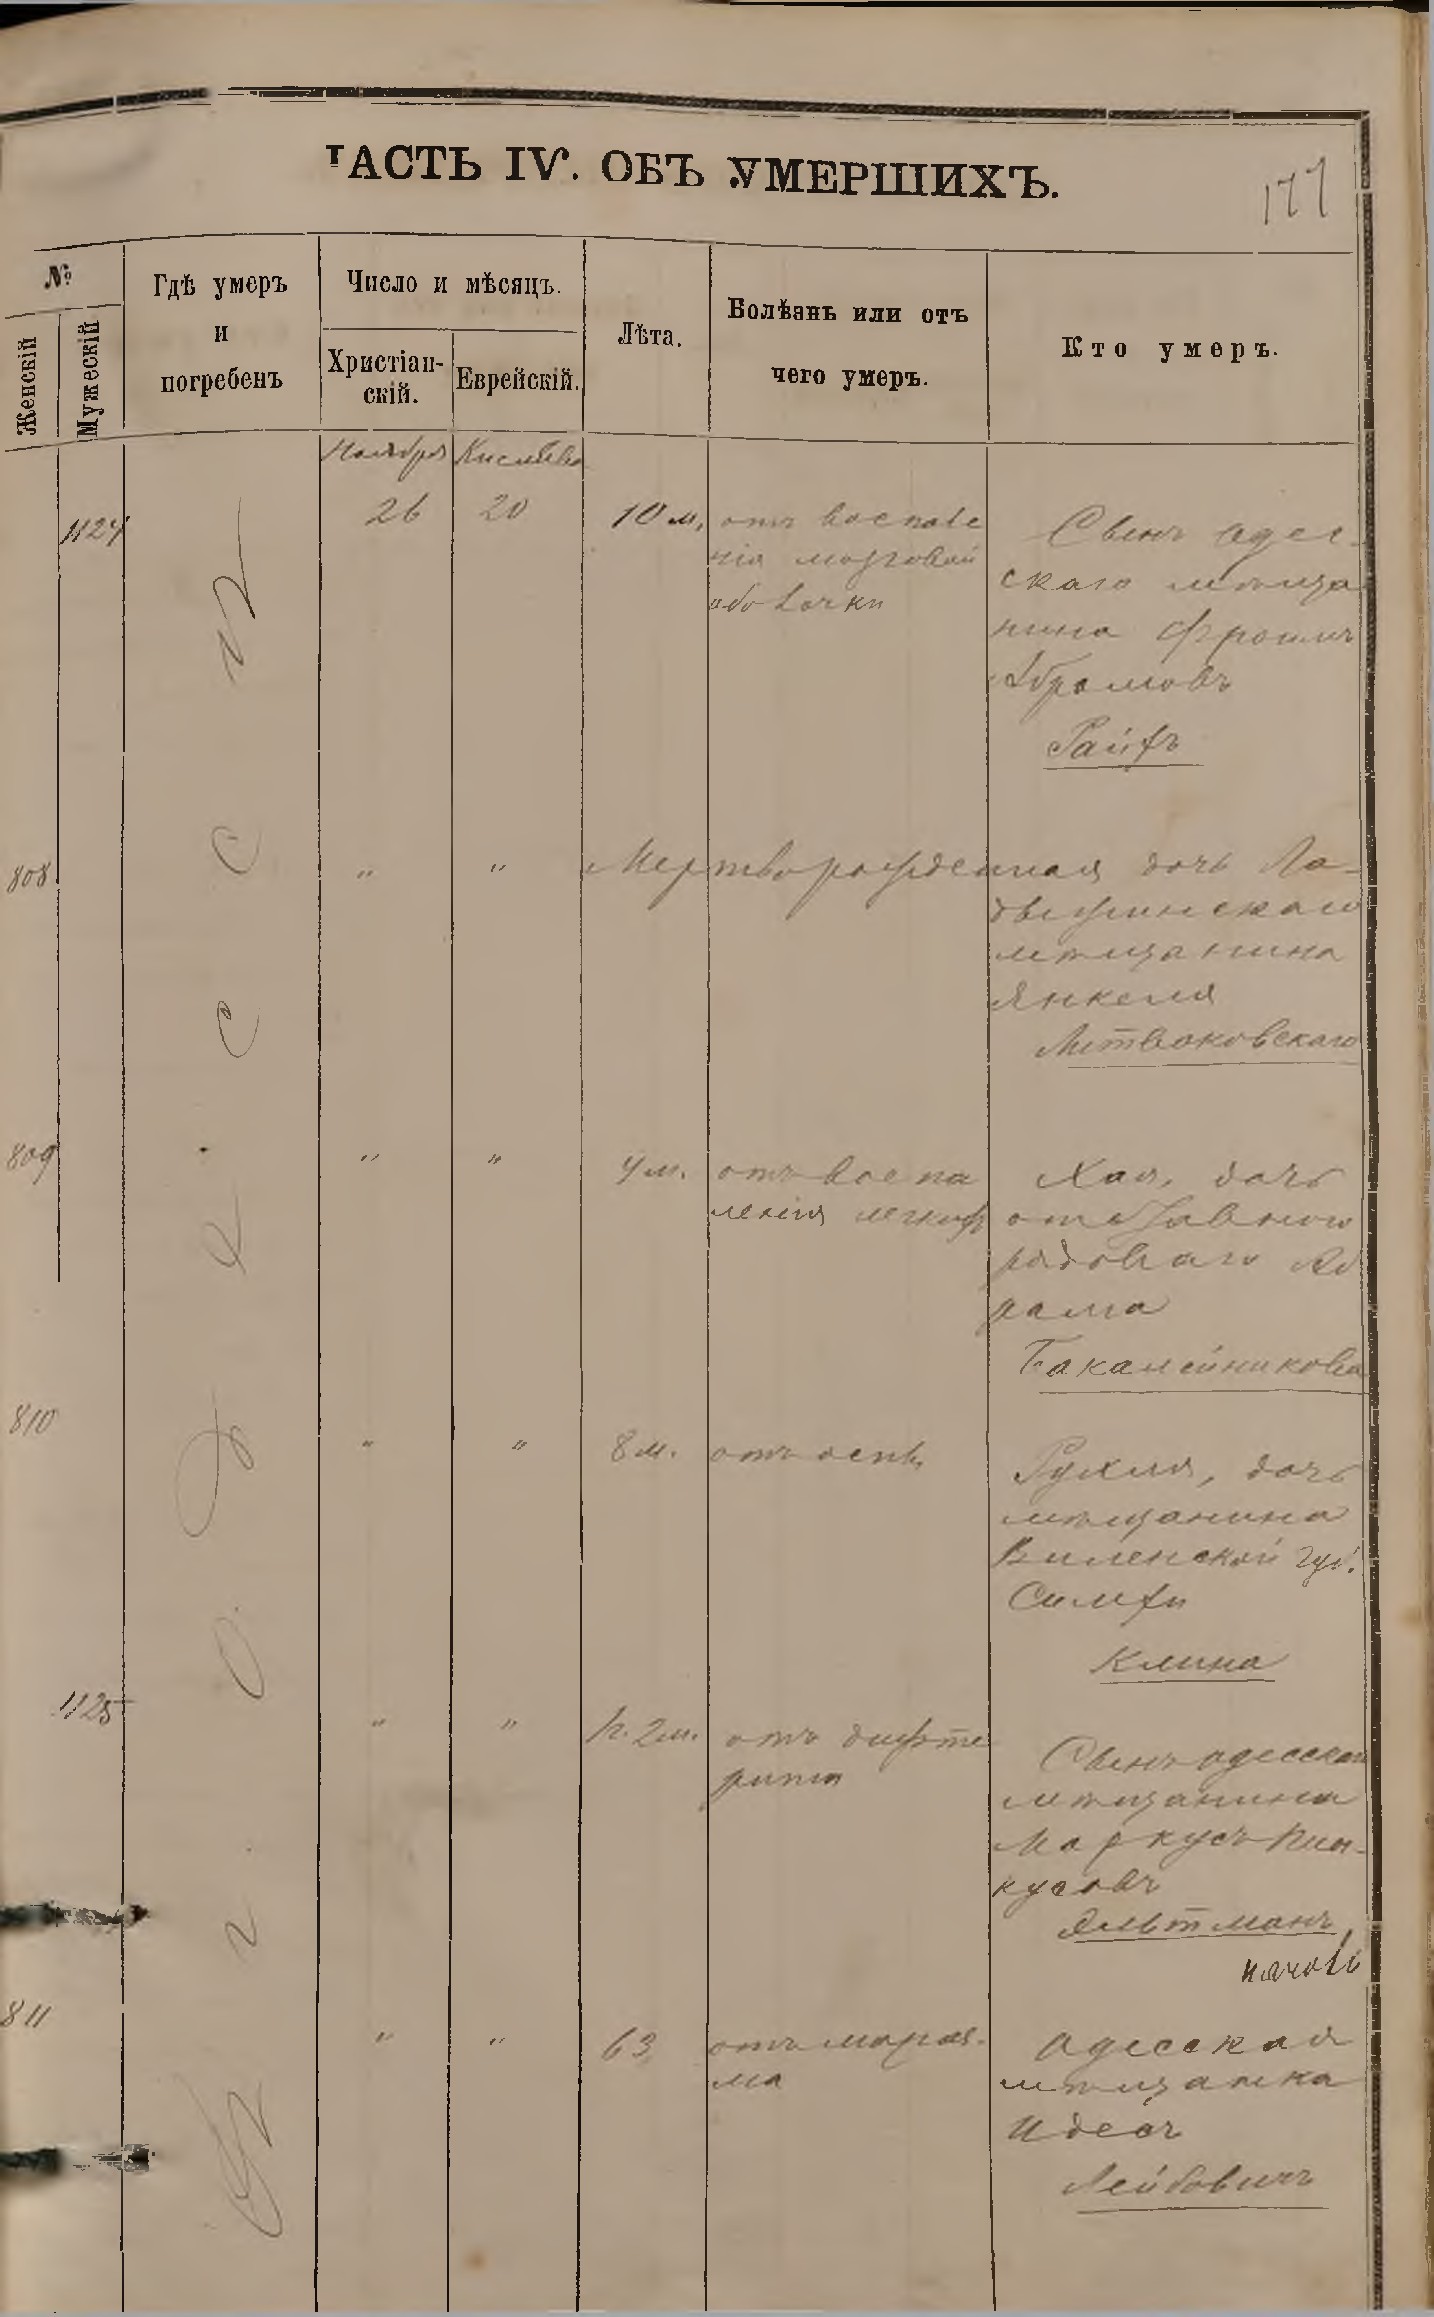 ЧАСТЬ IV. ОБЪ УМЕРШИХЪ.
177
№
Женскій
Мужескій
Гдѣ умеръ
и
погребенъ
Число и мѣсяцъ.
Христіан-
скій.
Еврейскій.
Лѣта.
Болѣзнь или отъ
чего умеръ.
Кто умеръ.
Ноября Кислева
1124
26 20 10 м.
отъ воспале
нія мозговой
оболочки
Сынъ одес-
скаго мѣща
нина Фроимъ
Абрамовъ
Райфъ
808
" "
Мертворожденная дочь Ло-
движинскаго
мѣщанина
Янкеля
Литваковскаго
809
" " 4 м.
отъ воспа
ленія легкихъ
Хая, дочь
отставного
рядоваго Аб
рама
Бакалейникова
810
" " 8 м. отъ оспы
Рухля, дочь
мѣщанина
Виленской губ.
Симхи
Клина
1125
" " 1г. 2м.
отъ дифте
рита
Сынъ одесскаго
мѣщанина
Маркусъ Пин-
кусовъ
Альтманъ,
811
" " 63
отъ мараз-
ма
Одесская
мѣщанка
Идесъ
Лейбовичъ
Въ г. Одессѣ